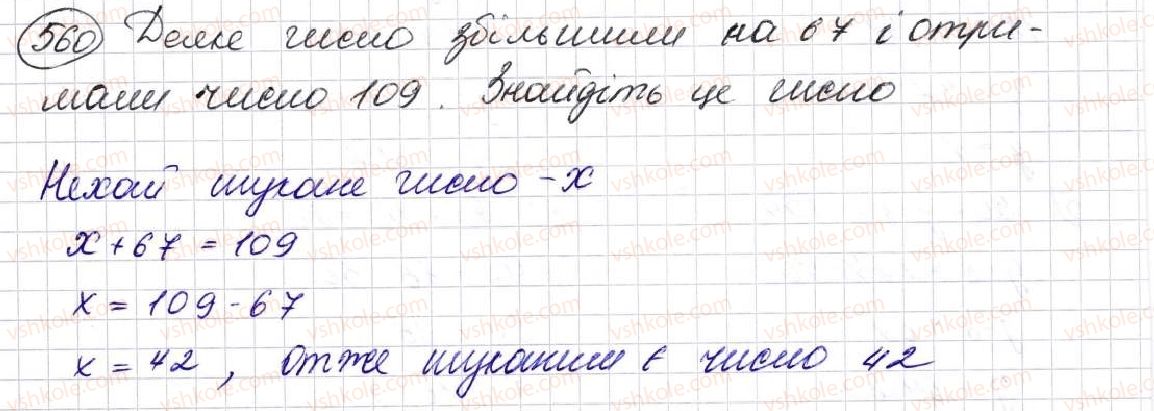 560 Деяке число збільшили на 67 і отри-
мали число 109. Знайдіть це число
Нехай шукане число - x
x + 67 = 109
x = 109 - 67
x = 42, отже шуканим є число 42